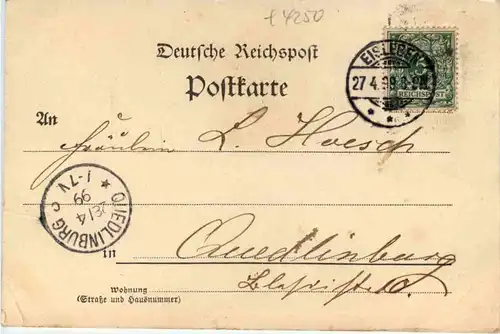 £ 4250
Deutsche Reichspost
Postkarte
EISLEBEN
27 4.99. 8-9N.
REICHSPOST
An
Fräulein L. Hoesch
QUEDLINBURG c
1-7V
99
in
Quedlinburg
Wohnung
(Straße und Hausnummer)